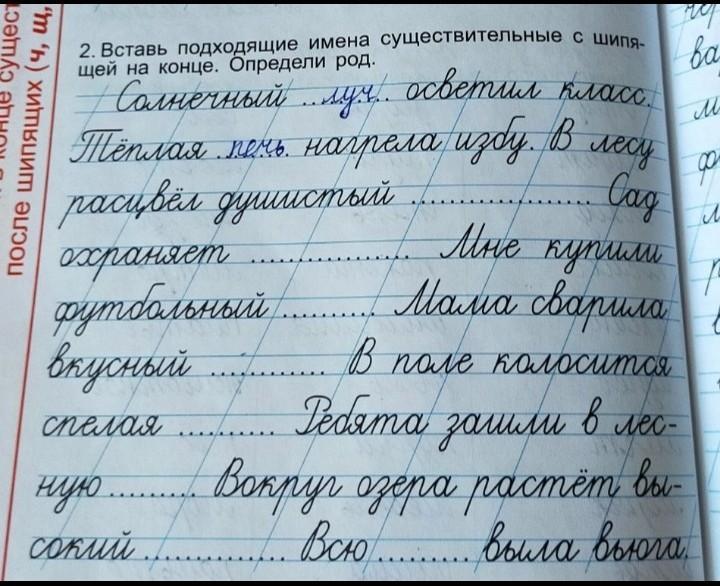 в конце сущест
после шипящих (ч, щ,
2. Вставь подходящие имена существительные с шипя-
щей на конце. Определи род.
Солнечный ..луч.. осветил класс.
Тёплая .печь. нагрела избу. В лесу
расцвёл душистый .................. Сад
охраняет ................ Мне купили
футбольный .......... Мама сварила
вкусный ............ В поле колосится
спелая .......... Ребята зашли в лес-
ную ......... Вокруг озера растёт вы-
сокий .............. Всю .......... выла вьюга.